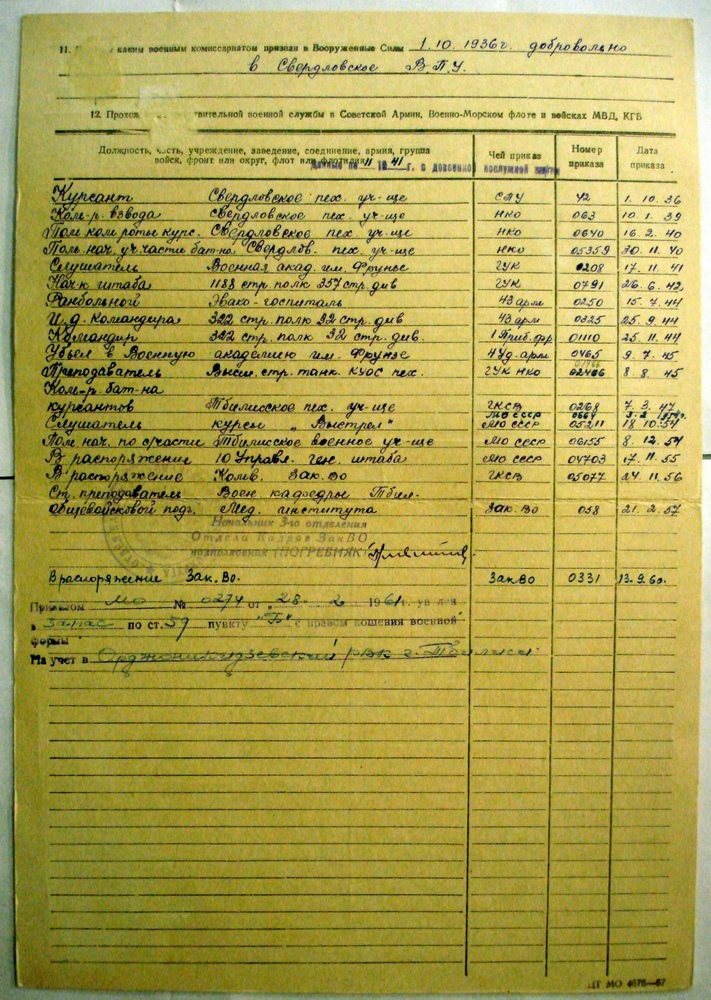 11. каким военным комиссариатом призван в Вооруженные Силы 1.10.1936г. добровольно
в Свердловское В.П.У.
12. Прохож твительной военной службы в Советской Армии, Военно-Морском флоте и войсках МВД, КГБ
Должность, часть, учреждение, заведение, соединение, армия, группа войск, фронт или округ, флот или флотилия Чей приказ Номер приказа Дата приказа
Данные по 11 1941 г. с довоенной послужной
Курсант Свердловское пех. уч-ще САУ 42 1. 10. 36
Ком-р. взвода Свердловское пех. уч-ще НКО 063 10. 1. 39
Пом. ком. роты курс. Свердловское пех. уч-ще НКО 0640 16. 2. 40
Пом. нач. уч. части бат-на Свердлов. пех. уч-ще НКО 05359 30. 11. 40
Слушатель Военная акад. им. Фрунзе ГУК 0208 17. 11. 41
Нач-к штаба 1188 стр. полк 357 стр. див ГУК 0791 26. 6. 42
Ранбольной Эвако-госпиталь 43 арм 0250 15. 7. 44
И.д. Командира 322 стр. полк 32 стр. див 43 арм 0325 25. 9. 44
Командир 322 стр. полк 32 стр. див. 1 Приб. фр 01110 25. 11. 44
Убыл в Военную академию им. Фрунзе 4 Уд. арм 0465 9. 7. 45
Преподаватель Высш. стр. танк. КУОС пех. ГУК НКО 8. 8. 45
Ком-р. бат-на
курсантов Тбилисское пех. уч-ще ГКСВ 0268 7. 3. 47
МО СССР 0664
Слушатель курсы "Выстрел" МО СССР 05211 18. 10. 54
Пом. нач. по с/части Тбилисское военное уч-ще МО СССР 06155 8. 12. 54
В распоряжение 10 Управл. ген. штаба МО СССР 04703 17. 11. 55
В распоряжение Ком. в. Зак. ВО ГКСВ 05077 24. 11. 56
Ст. преподаватель Воен кафедры Тбил.
общевойсковой подг. Мед. института Зак. Во 058 21. 2. 57
Начальник 3-го отделения
Отдела Кадров ЗакВО
подполковник (ПОГРЕБНЯК)
В распоряжение Зак. Во. ЗакВО 0331 13. 9. 60.
Приказом МО № 0274 от "28" 2 1961 г. уволен
в запас по ст. 59 пункту "Б" с правом ношения военной
формы
На учет в Орджоникидзевский РВК г. Тбилиси.
ЦТ МО 4676—67